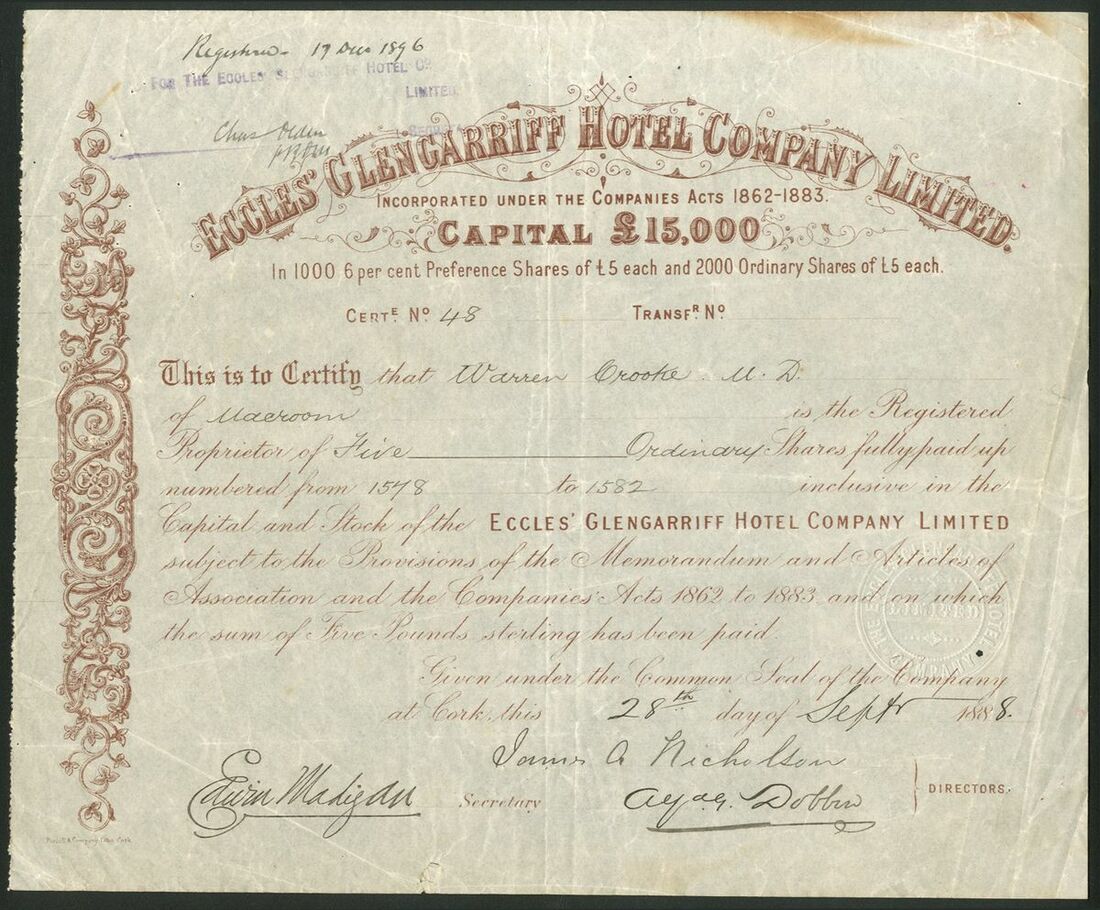 Registered 17 Dec 1896
FOR THE ECCLES GLENGARRIFF HOTEL Co
LIMITED.
Chas Olden
ECCLES' GLENGARRIFF HOTEL COMPANY LIMITED.
INCORPORATED UNDER THE COMPANIES ACTS 1862-1883.
CAPITAL £15,000
In 1000 6 per cent Preference Shares of £5 each and 2000 Ordinary Shares of £5 each.
CERTE. No. 48 TRANSFR. No.
This is to Certify that Warren Crooke M.D.
of Macroom is the Registered
Proprietor of Five Ordinary Shares fully paid up
numbered from 1578 to 1582 inclusive in the
Capital and Stock of the ECCLES' GLENGARRIFF HOTEL COMPANY LIMITED
subject to the Provisions of the Memorandum and Articles of
Association and the Companies' Acts 1862 to 1883 and on which
the sum of Five Pounds sterling has been paid
THE ECCLES GLENGARRIFF HOTEL COMPANY LIMITED
Given under the Common Seal of the Company
at Cork this 28th day of Septr 1888.
James A Nicholson
Edwin Madigan Secretary Dobbin DIRECTORS.